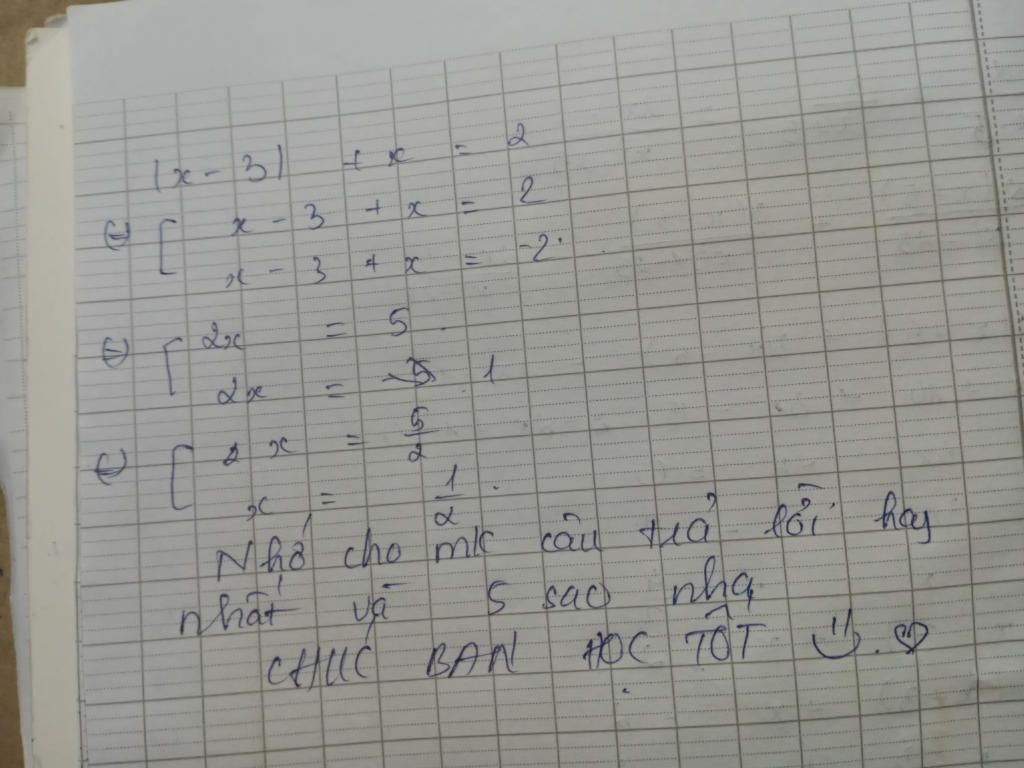 |x - 3| + x = 2
⇔ [ x - 3 + x = 2
x - 3 + x = -2.
⇔ [ 2x = 5.
2x = 1
⇔ [ x = 5/2
x = 1/2.
Nhớ cho mk câu trả lời hay
nhất và 5 sao nha
CHÚC BẠN HỌC TỐT